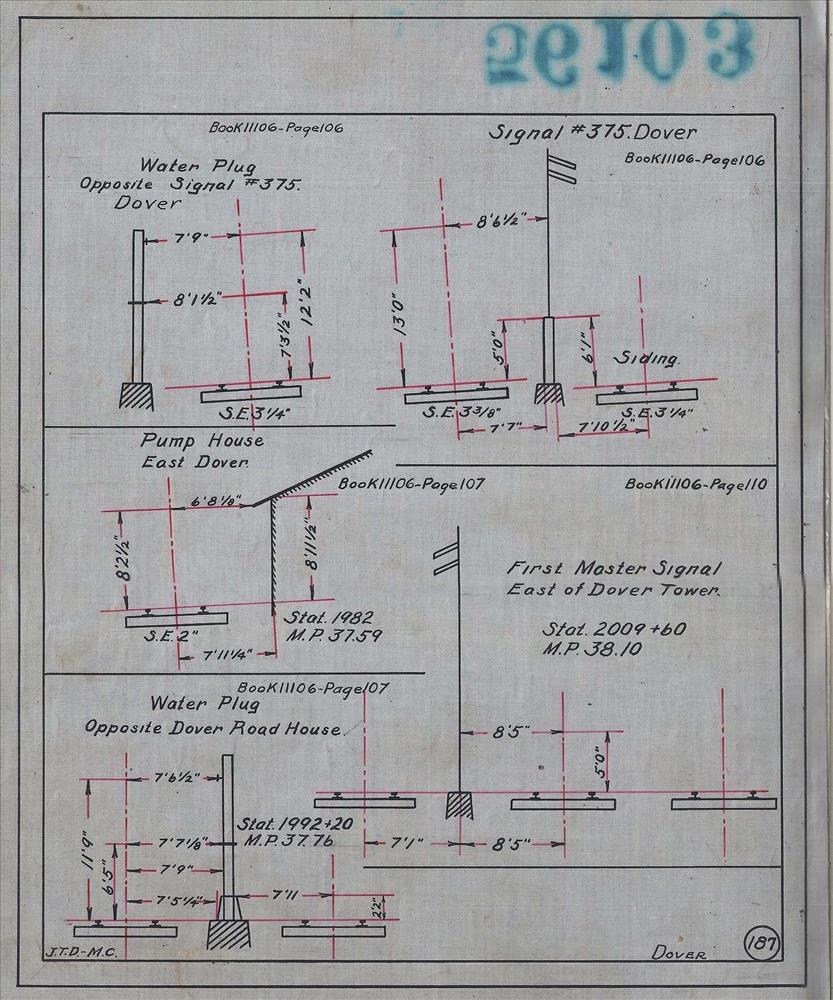 56103
Book11106-Page106
Water Plug
Opposite Signal #375.
Dover
7'9"
8'1½"
7'3½"
12'2"
S.E. 3¼"
Signal #375. Dover
Book11106-Page106
8'6½"
13'0"
5'0"
6'1"
Siding.
S.E. 3⅜"
S.E. 3¼"
7'7"
7'10½"
Pump House
East Dover.
Book11106-Page107
6'8⅛"
8'2½"
8'11½"
S.E. 2"
Stat. 1982
M.P. 37.59
7'11¼"
Book11106-Page110
First Master Signal
East of Dover Tower.
Stat. 2009+60
M.P. 38.10
8'5"
5'0"
7'1"
8'5"
Book11106-Page107
Water Plug
Opposite Dover Road House.
7'6½"
Stat. 1992+20
M.P. 37.76
11'9"
6'5"
7'7⅛"
7'9"
7'5¼"
7'11
2'2"
J.T.D.-M.C.
Dover
187